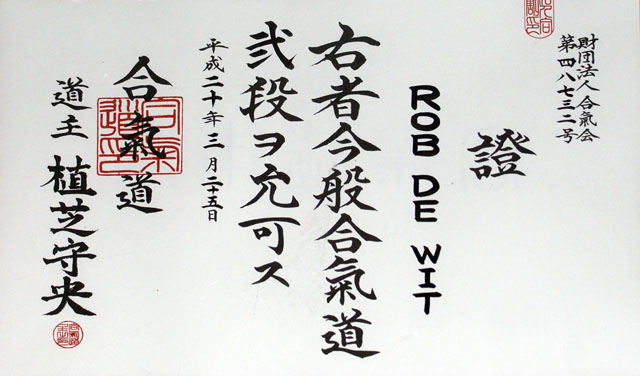 財団法人 合氣会
第四八七三二号
證
ROB DE WIT
右者今般合氣道
弐段ヲ允可ス
平成二十年三月二十五日
合氣道
道主 植芝守央